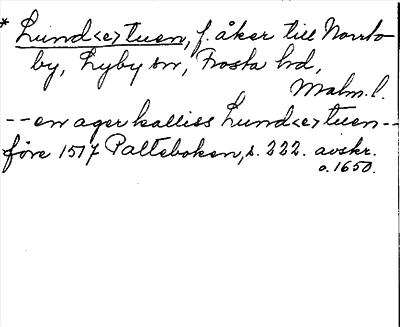 * Lund<e>tuen, f. åker till Norrto
by, Lyby sn, Frosta hd,
Malm. l.
-- en ager kalliss Lund<e>tuen --
före 1517 Palteboken, s. 222. avskr.
o. 1650.